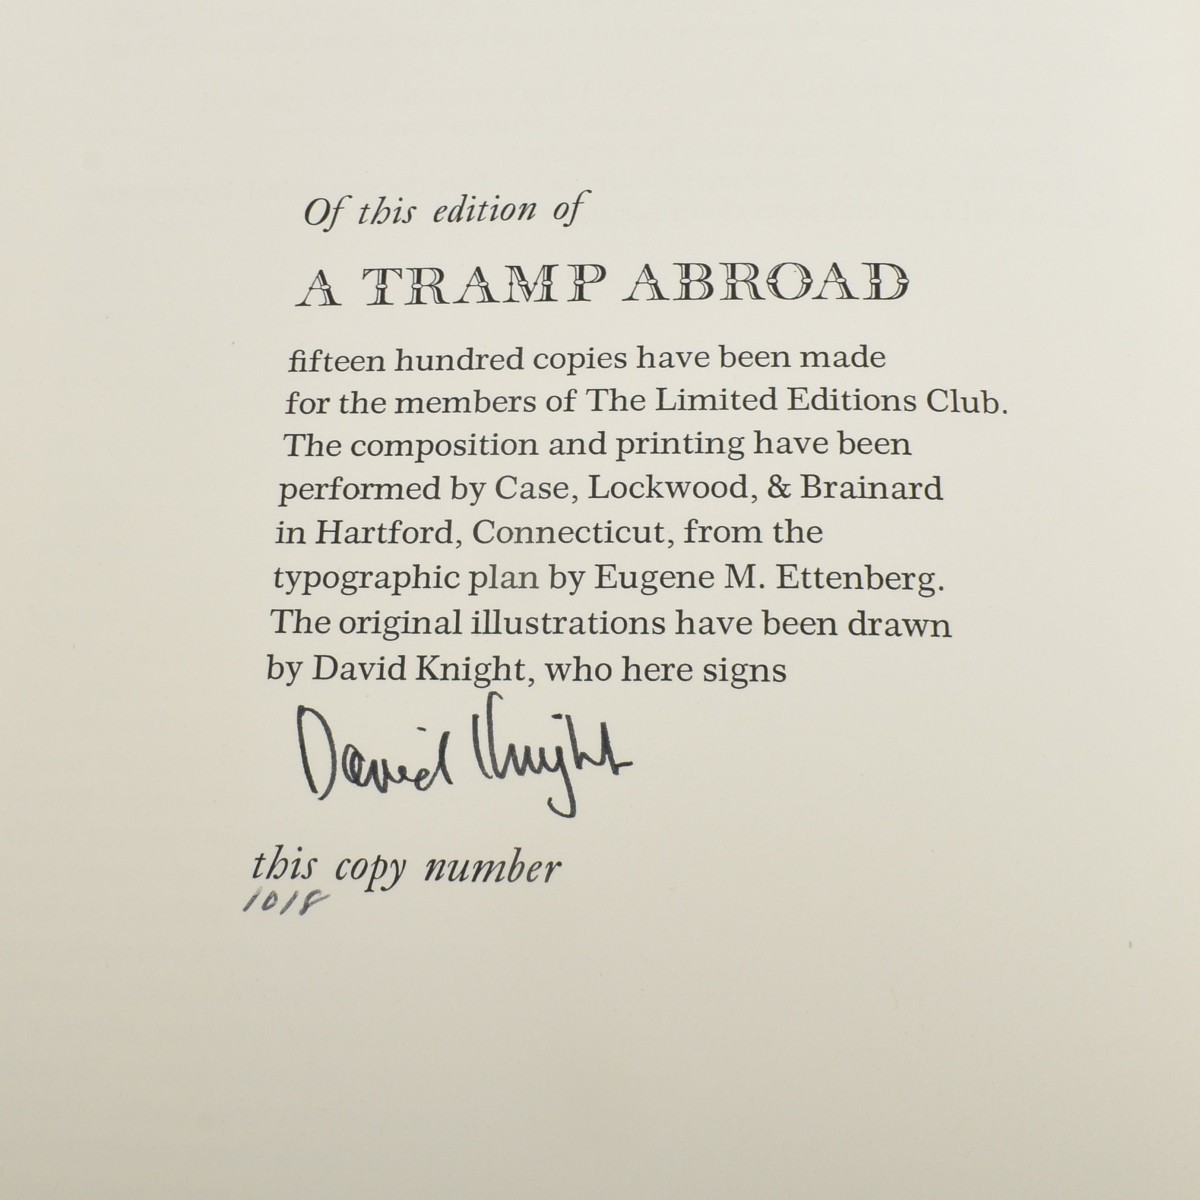 Of this edition of
A TRAMP ABROAD
fifteen hundred copies have been made
for the members of The Limited Editions Club.
The composition and printing have been
performed by Case, Lockwood, & Brainard
in Hartford, Connecticut, from the
typographic plan by Eugene M. Ettenberg.
The original illustrations have been drawn
by David Knight, who here signs
David Knight
this copy number
1018